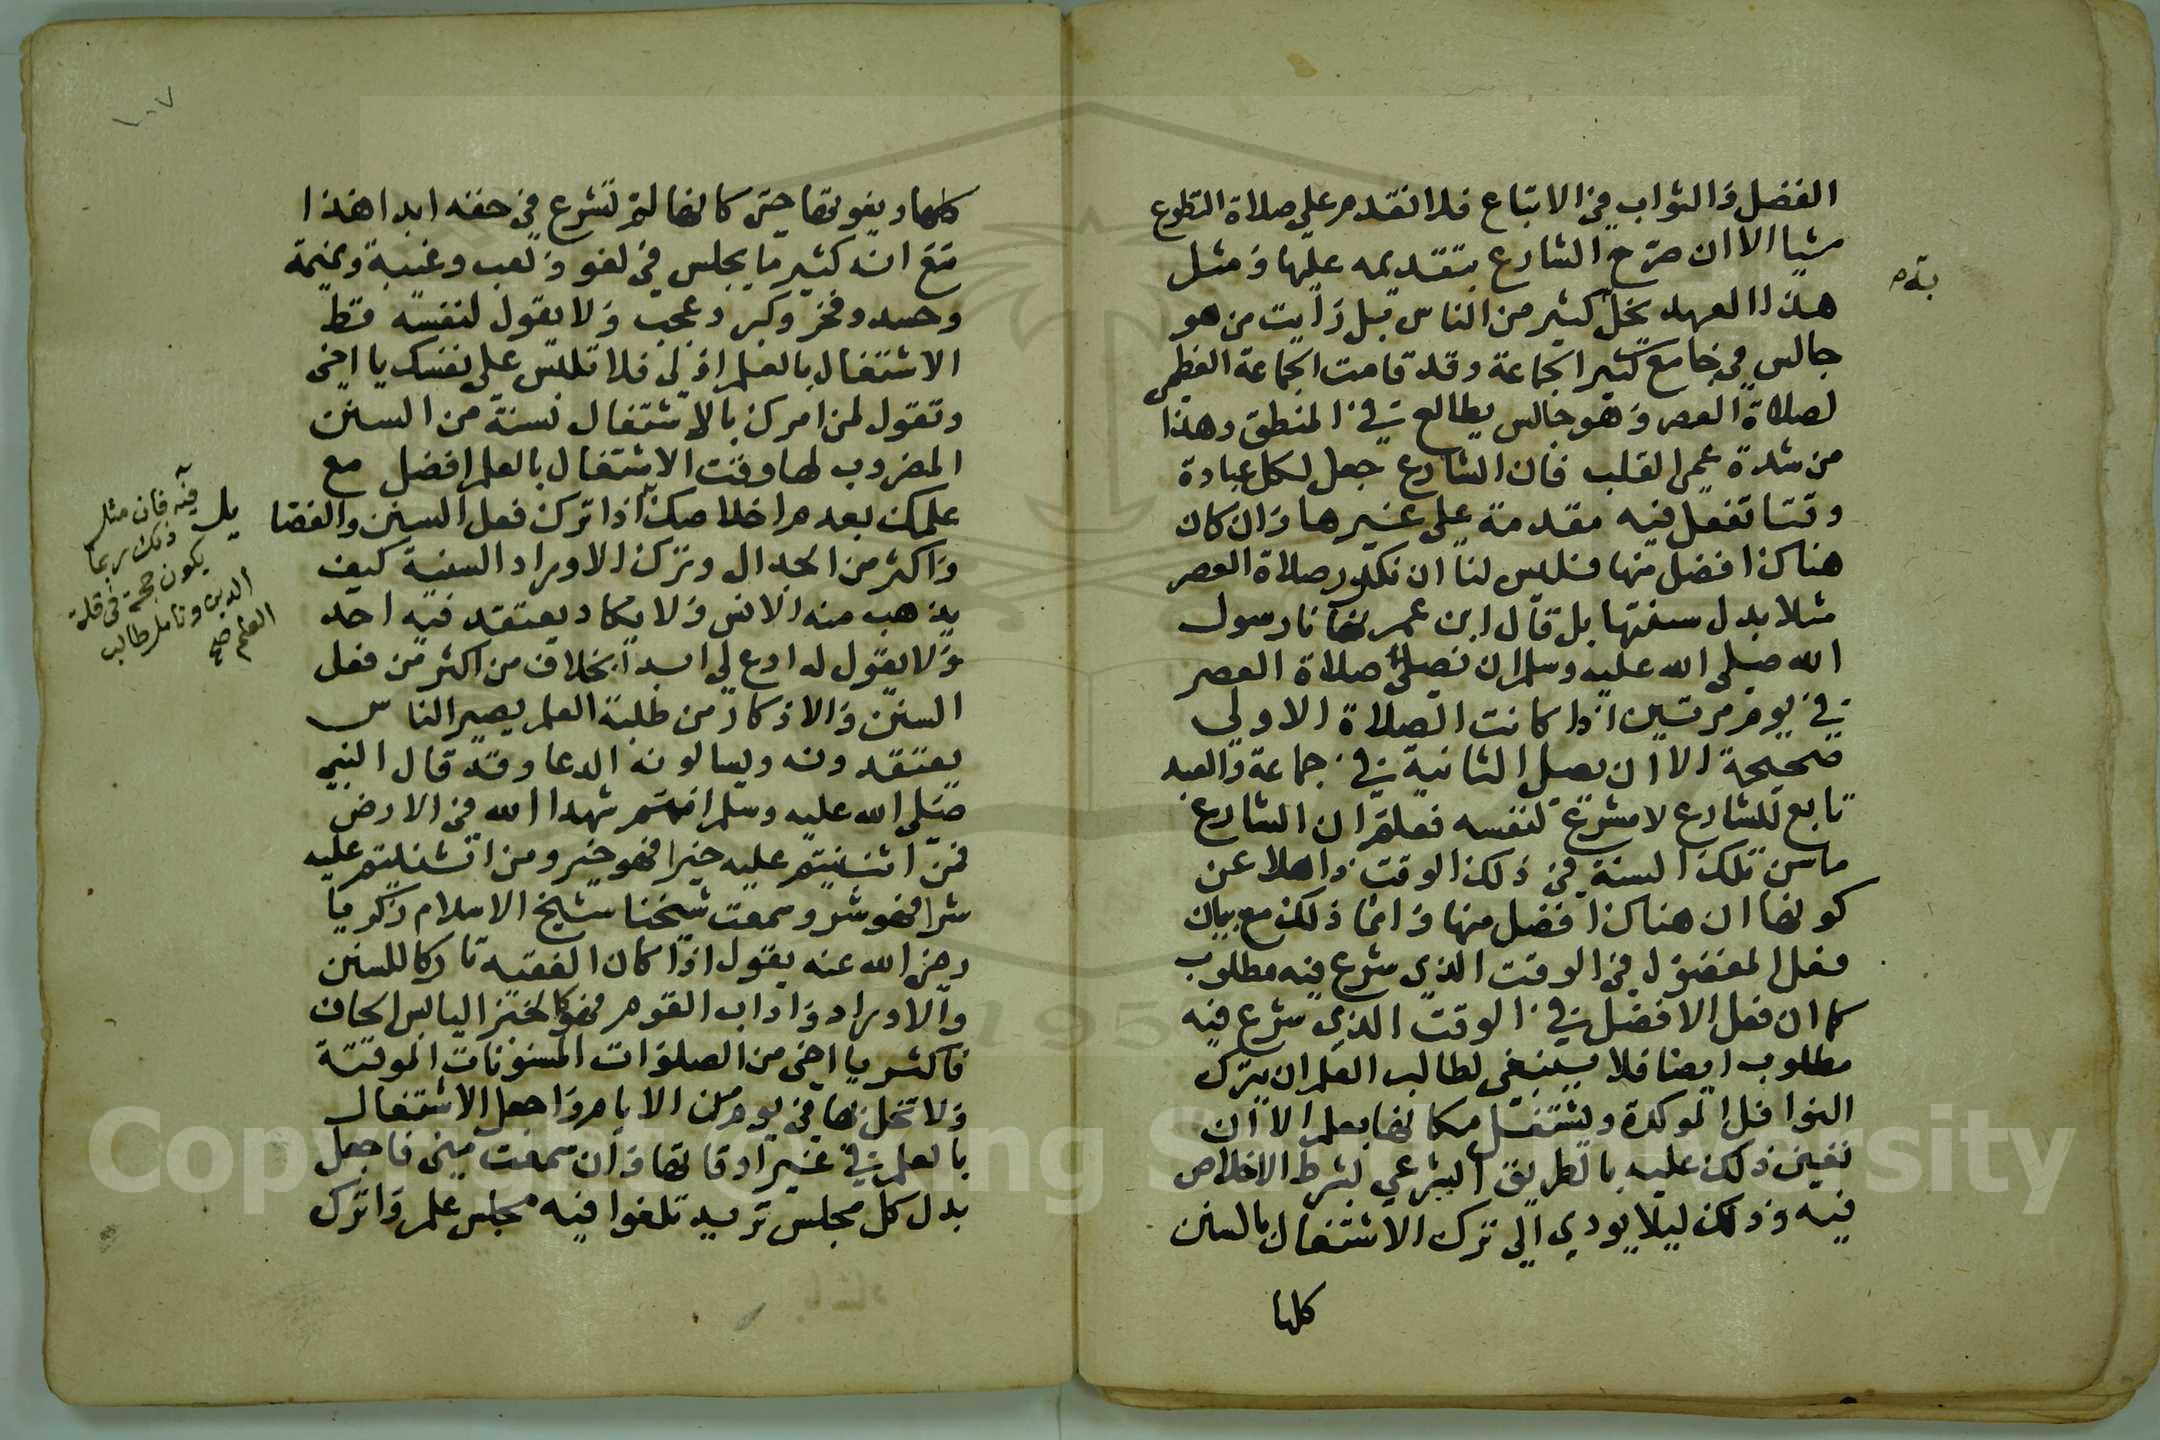 الفضل والثواب في الاتباع فلا نقدم على صلاة التطوع
شيا الا ان صرح الشارع بتقديمه عليها ومثل
هذا العهد يخل كثير من الناس بل رايت من هو
جالس في جامع كثير الجماعة وقد قامت الجماعة العظمى
لصلاة العصر وهو جالس يطالع في المنطق وهذا
من شدة عمى القلب فان الشارع جعل لكل عبادة
وقتا تفعل فيه مقدمة على غيرها وان كان
هناك افضل منها فليس لنا ان نكرر صلاة العصر
مثلا بدل سنتها بل قال ابن عمر نهانا رسول
الله صلى الله عليه وسلم ان نصلي صلاة العصر
في يوم مرتين اذا كانت الصلاة الاولى
صحيحة الا ان يصلي الثانية في جماعة والعبد
تابع للشارع لا مشرع لنفسه فعلم ان الشارع
ما سن تلك السنة في ذلك الوقت ذاهلا عن
كونها ان هناك افضل منها وانما ذلك مع بيان
فعل المفضول في الوقت الذي شرع فيه مطلوب
كما ان فعل الافضل في الوقت الذي شرع فيه
مطلوب ايضا فلا ينبغي لطالب العلم ان يترك
النوافل الموكدة ويشتغل مكانها بعلم الا ان
تعين ذلك عليه بالطريق الشرعي بشرط الاخلاص
فيه وذلك ليلا يودي الى ترك الاشتغال بالسنن
كلها
كلها ويفوتها حتى كانها لم تشرع في حقه ابدا هذا
مع انه كثير ما يجلس في لغو ولعب وغيبة ونميمة
وحسد وفخر وكبر وعجب ولا يقول لنفسه قط
الاشتغال بالعلم اولى فلا تلبس على نفسك يا اخي
وتقول لمن امرك بالاشتغال بسنة من السنن
المضروب لها وقت الاشتغال بالعلم افضل مع
علمك بعدم اخلاصك اذا ترك فعل السنن والفضا
يل
واكثر من الجدال وترك الاوراد السنية كيف
يذهب منه الانس ولا يكاد يعتقد فيه احد
ولا يقول له ادع لي ابدا بخلاف من اكثر من فعل
السنن والاذكار من طلبة العلم يصير الناس
يعتقدونه ويسالونه الدعا وقد قال النبي
صلى الله عليه وسلم انتم شهدا الله في الارض
فمن اثنيتم عليه خيرا فهو خير ومن اثنيتم عليه
شرا فهو شر وسمعت شيخنا شيخ الاسلام زكريا
رضي الله عنه يقول اذا كان الفقيه تاركا للسنن
والاوراد واداب القوم فهو كالخبز اليابس الحاف
فاكثر يا اخي من الصلوات المسنونات الموقتة
ولا تخل بها في يوم من الايام واجعل الاشتغال
بالعلم في غير اوقاتها وان سمعت مني فاجعل
بدل كل مجلس تريد تلغوا فيه مجلس علم واترك
فيه فان مثل
ذلك ربما
يكون حجة في قلة
الدين وتامل طالب
العلم صح
١٠٧